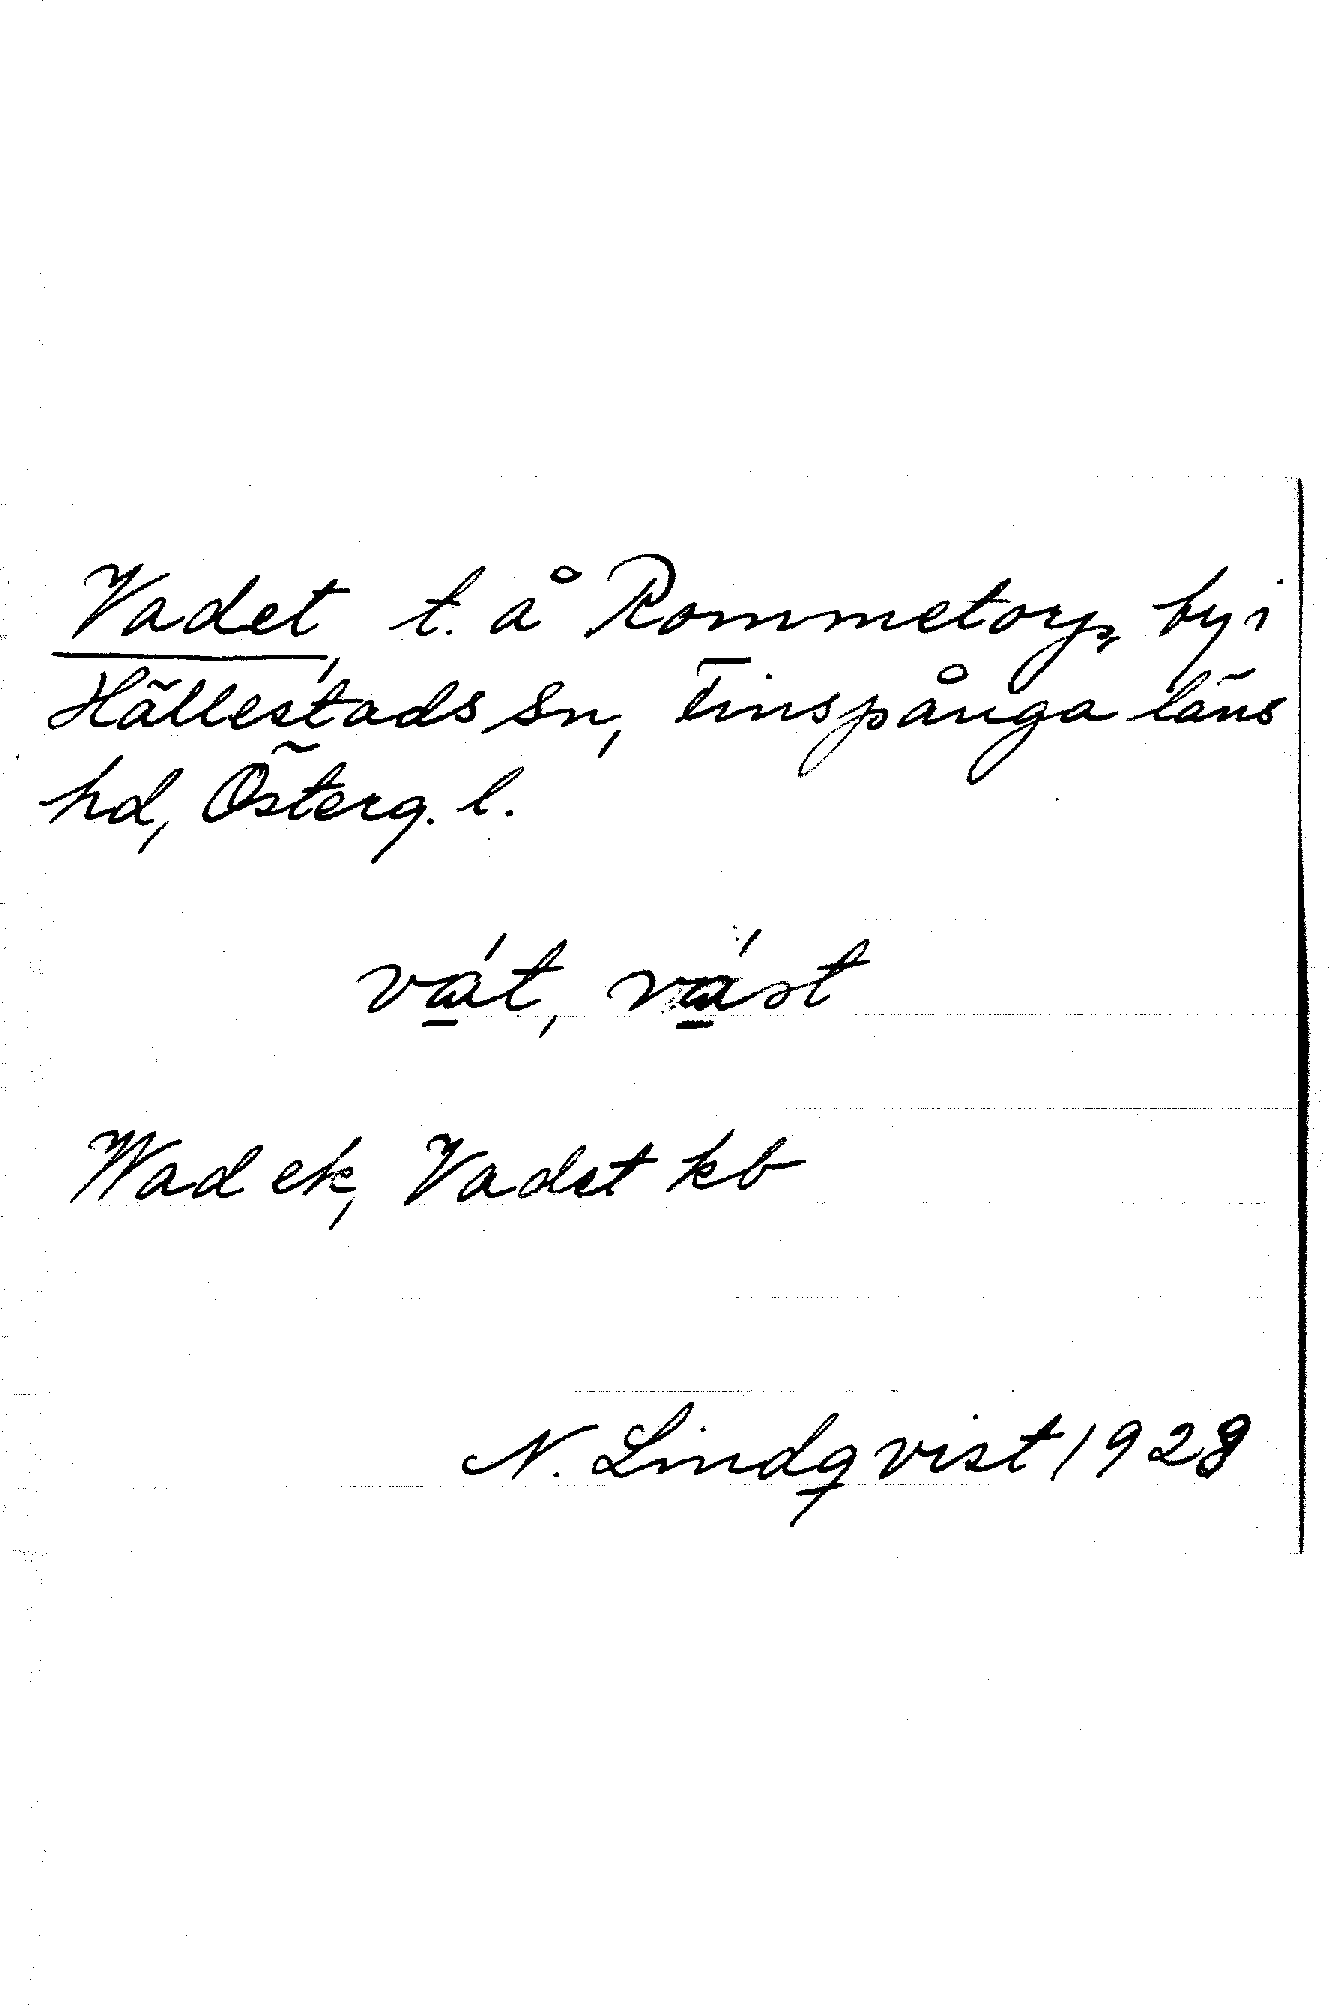 Vadet, t. å Rommetorp, by i
Hällestads sn, Finspånga läns
hd, Österg. l.
vát, vást
Wad ek, Vadet kb
N. Lindqvist 1928